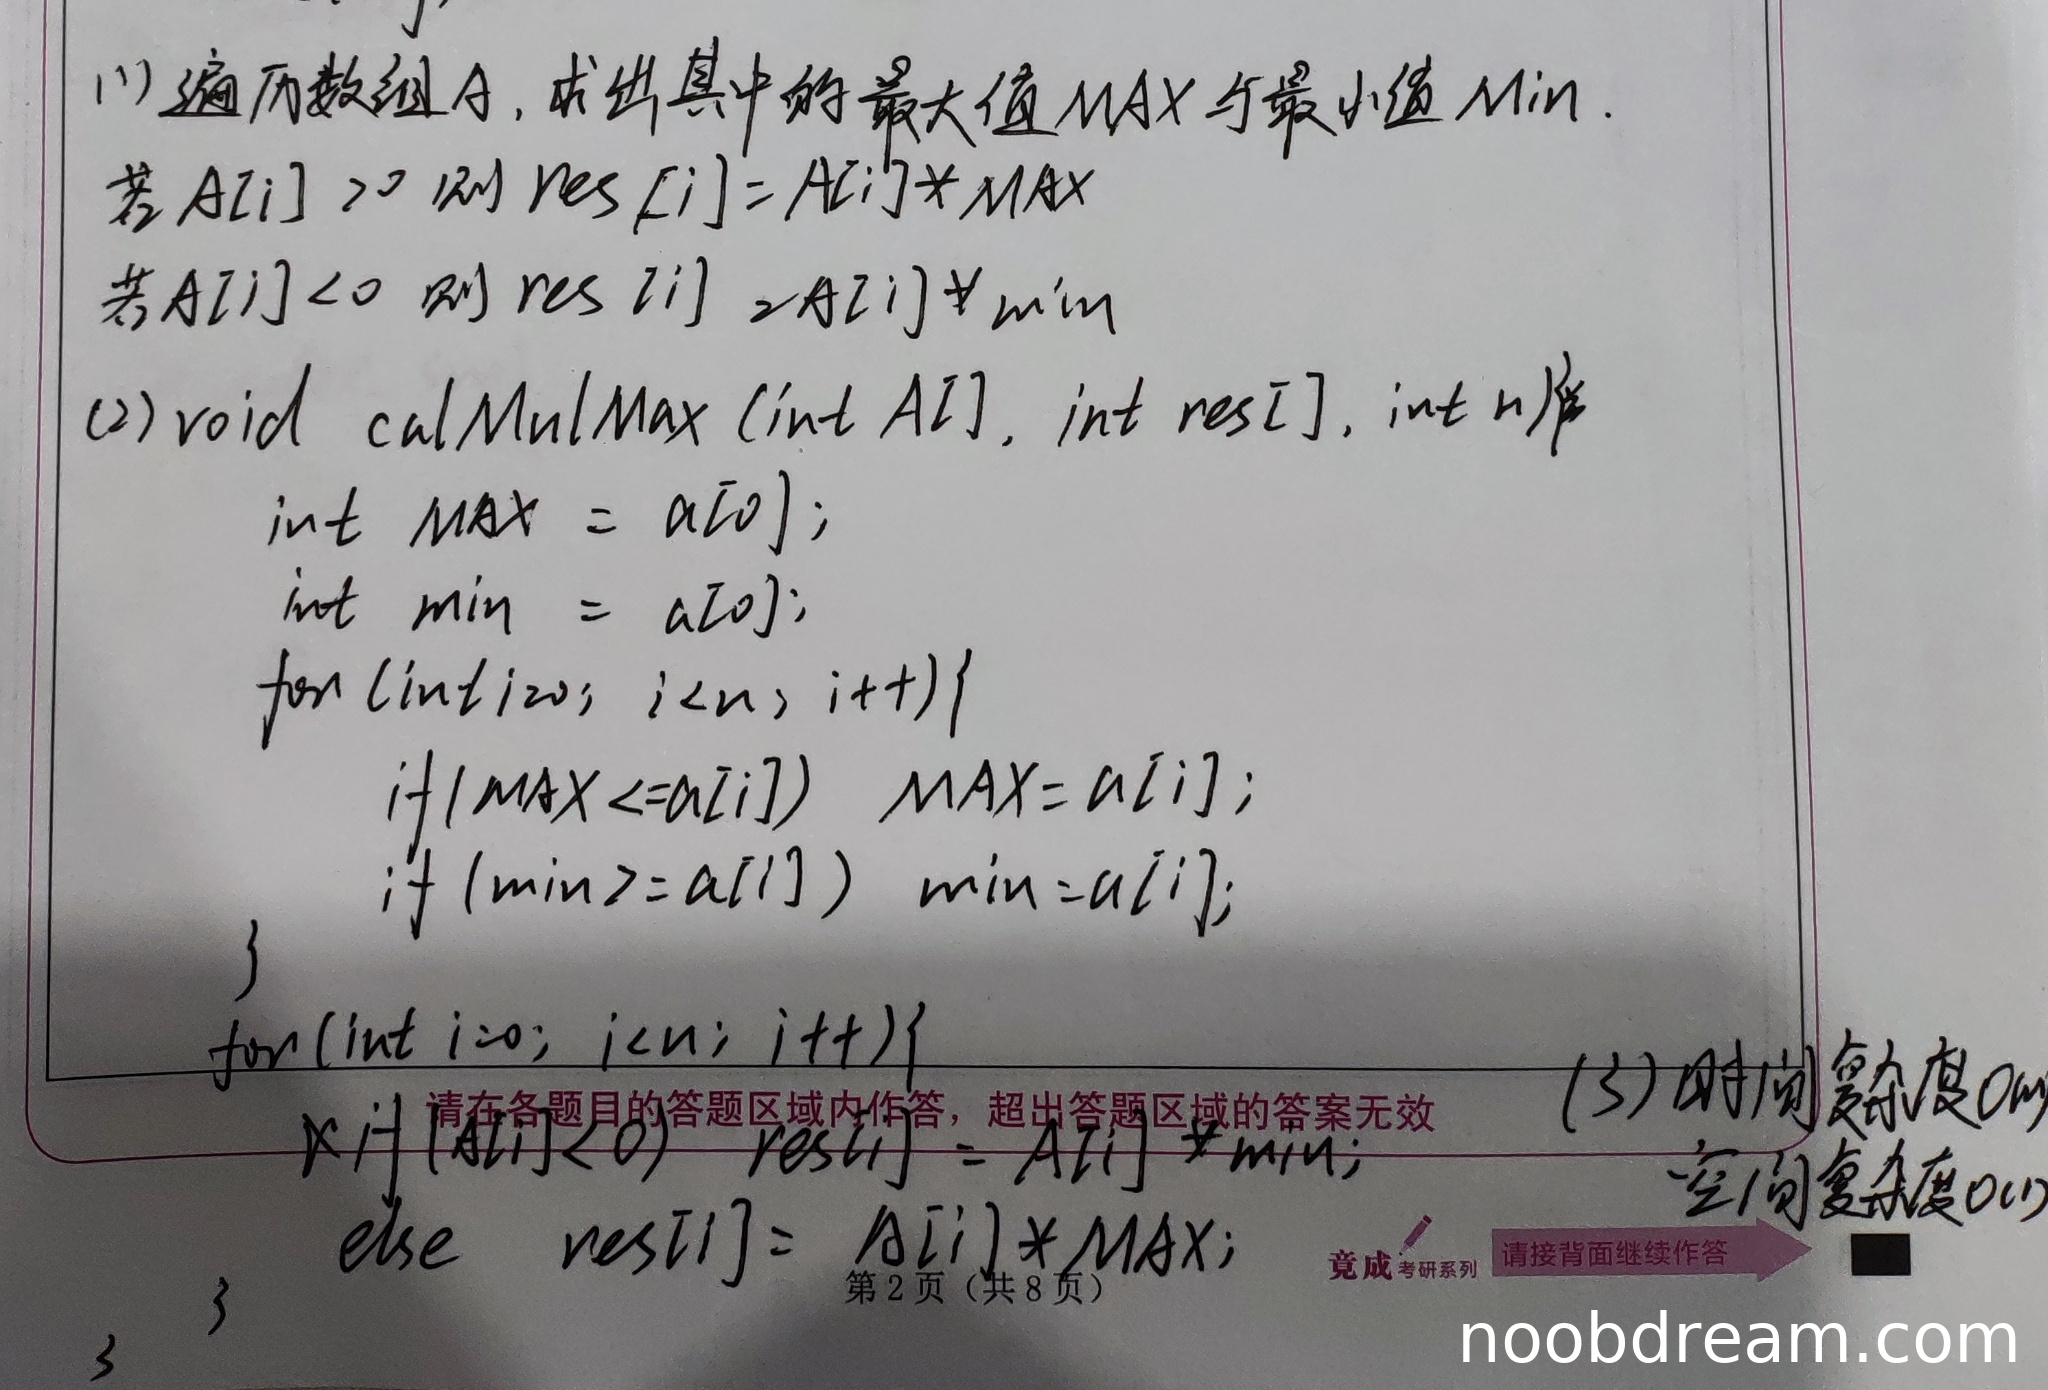 (1) 遍历数组A,求出其中的最大值MAX与最小值Min.
若A[i]>0则res[i]=A[i]*MAX
若A[i]<0则res[i]=A[i]*min
(2) void calMulMax(int A[], int res[], int n){
int MAX = a[0];
int min = a[0];
for(int i=0; i<n; i++){
if(MAX<=a[i]) MAX=a[i];
if(min>=a[i]) min=a[i];
}
for(int i=0; i<n; i++){
if(A[i]<0) res[i] = A[i]*min;
else res[i]= A[i]*MAX;
}
}
(3)时间复杂度O(n)
空间复杂度O(1)
请在各题目的答题区域内作答,超出答题区域的答案无效
竟成考研系列
请接背面继续作答
第2页(共8页)
noobdream.com